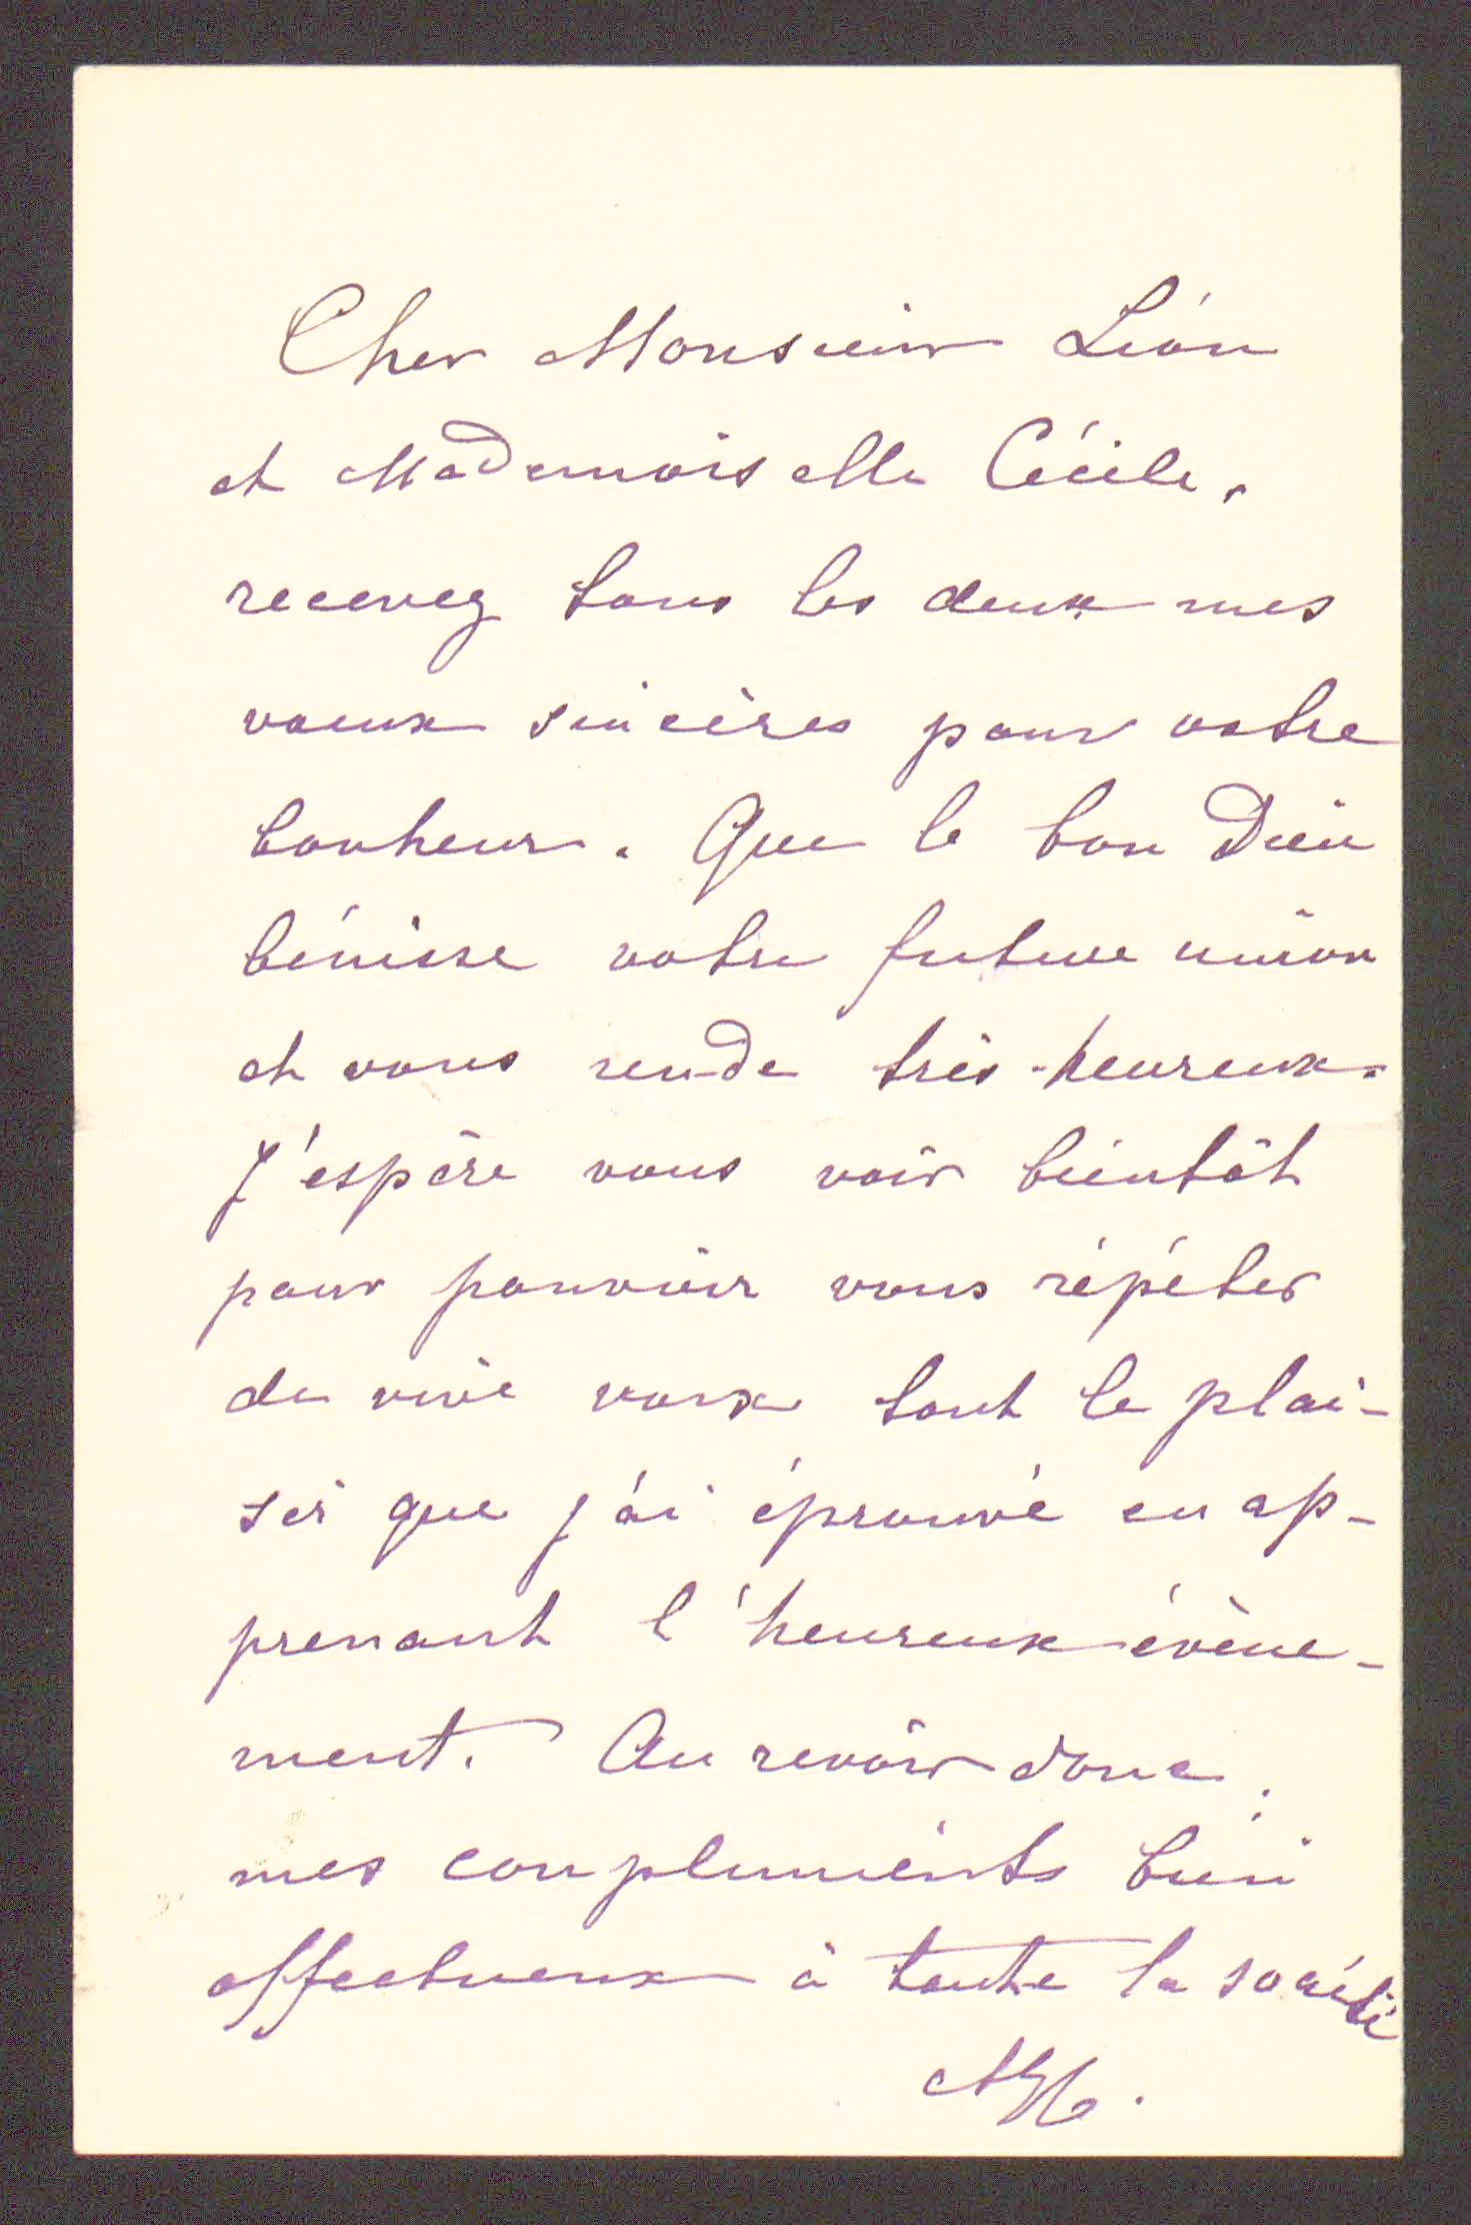 Cher Monsieur Léon
et Mademoiselle Cécile,
recevez tous les deux mes
voeux sincères pour votre
bonheur. Que le bon Dieu
bénisse votre future union
et vous rende très-heureux.
J'espère vous voir bientôt
pour pouvoir vous répéter
de vive voix tout le plai-
sir que j'ai éprouvé en ap-
prenant l'heureux évène-
ment. Au revoir donc,
mes compliments bien
affectueux à toute la société